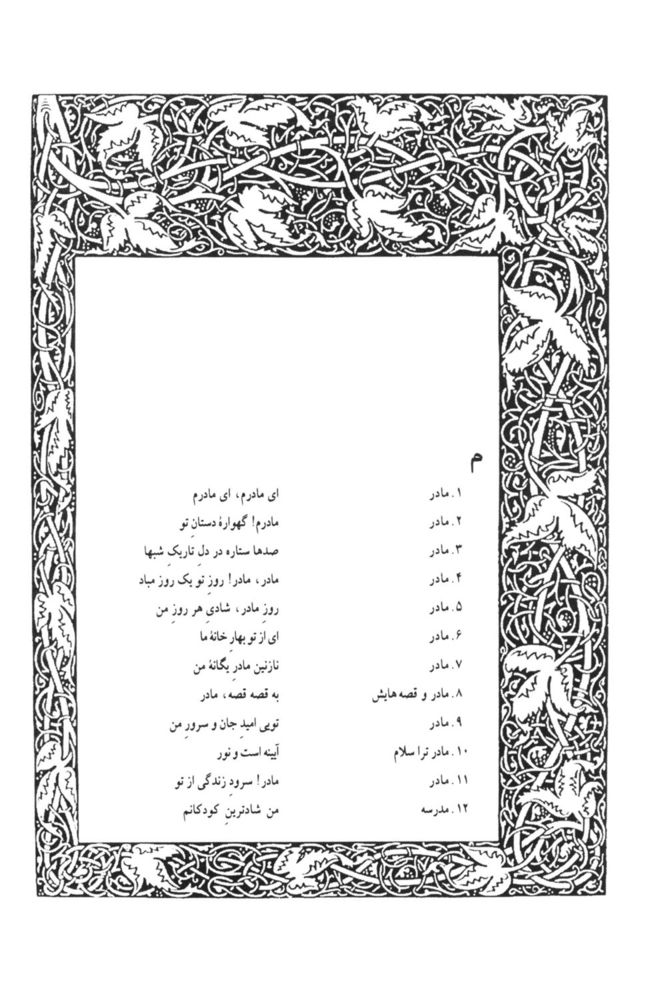 م
۱. مادر ای مادرم، ای مادرم
۲. مادر مادرم! گهوارهٔ دستانِ تو
۳. مادر صدها ستاره در دلِ تاریکِ شبها
۴. مادر مادر، مادر! روزِ تو یک روز مباد
۵. مادر روزِ مادر، شادیِ هر روزِ من
۶. مادر ای از تو بهارِ خانهٔ ما
۷. مادر نازنین مادرِ یگانهٔ من
۸. مادر و قصه‌هایش به قصه قصه، مادر
۹. مادر تویی امیدِ جان و سرورِ من
۱۰. مادر ترا سلام آیینه است و نور
۱۱. مادر مادر! سرودِ زندگی از تو
۱۲. مدرسه من شادترینِ کودکانم